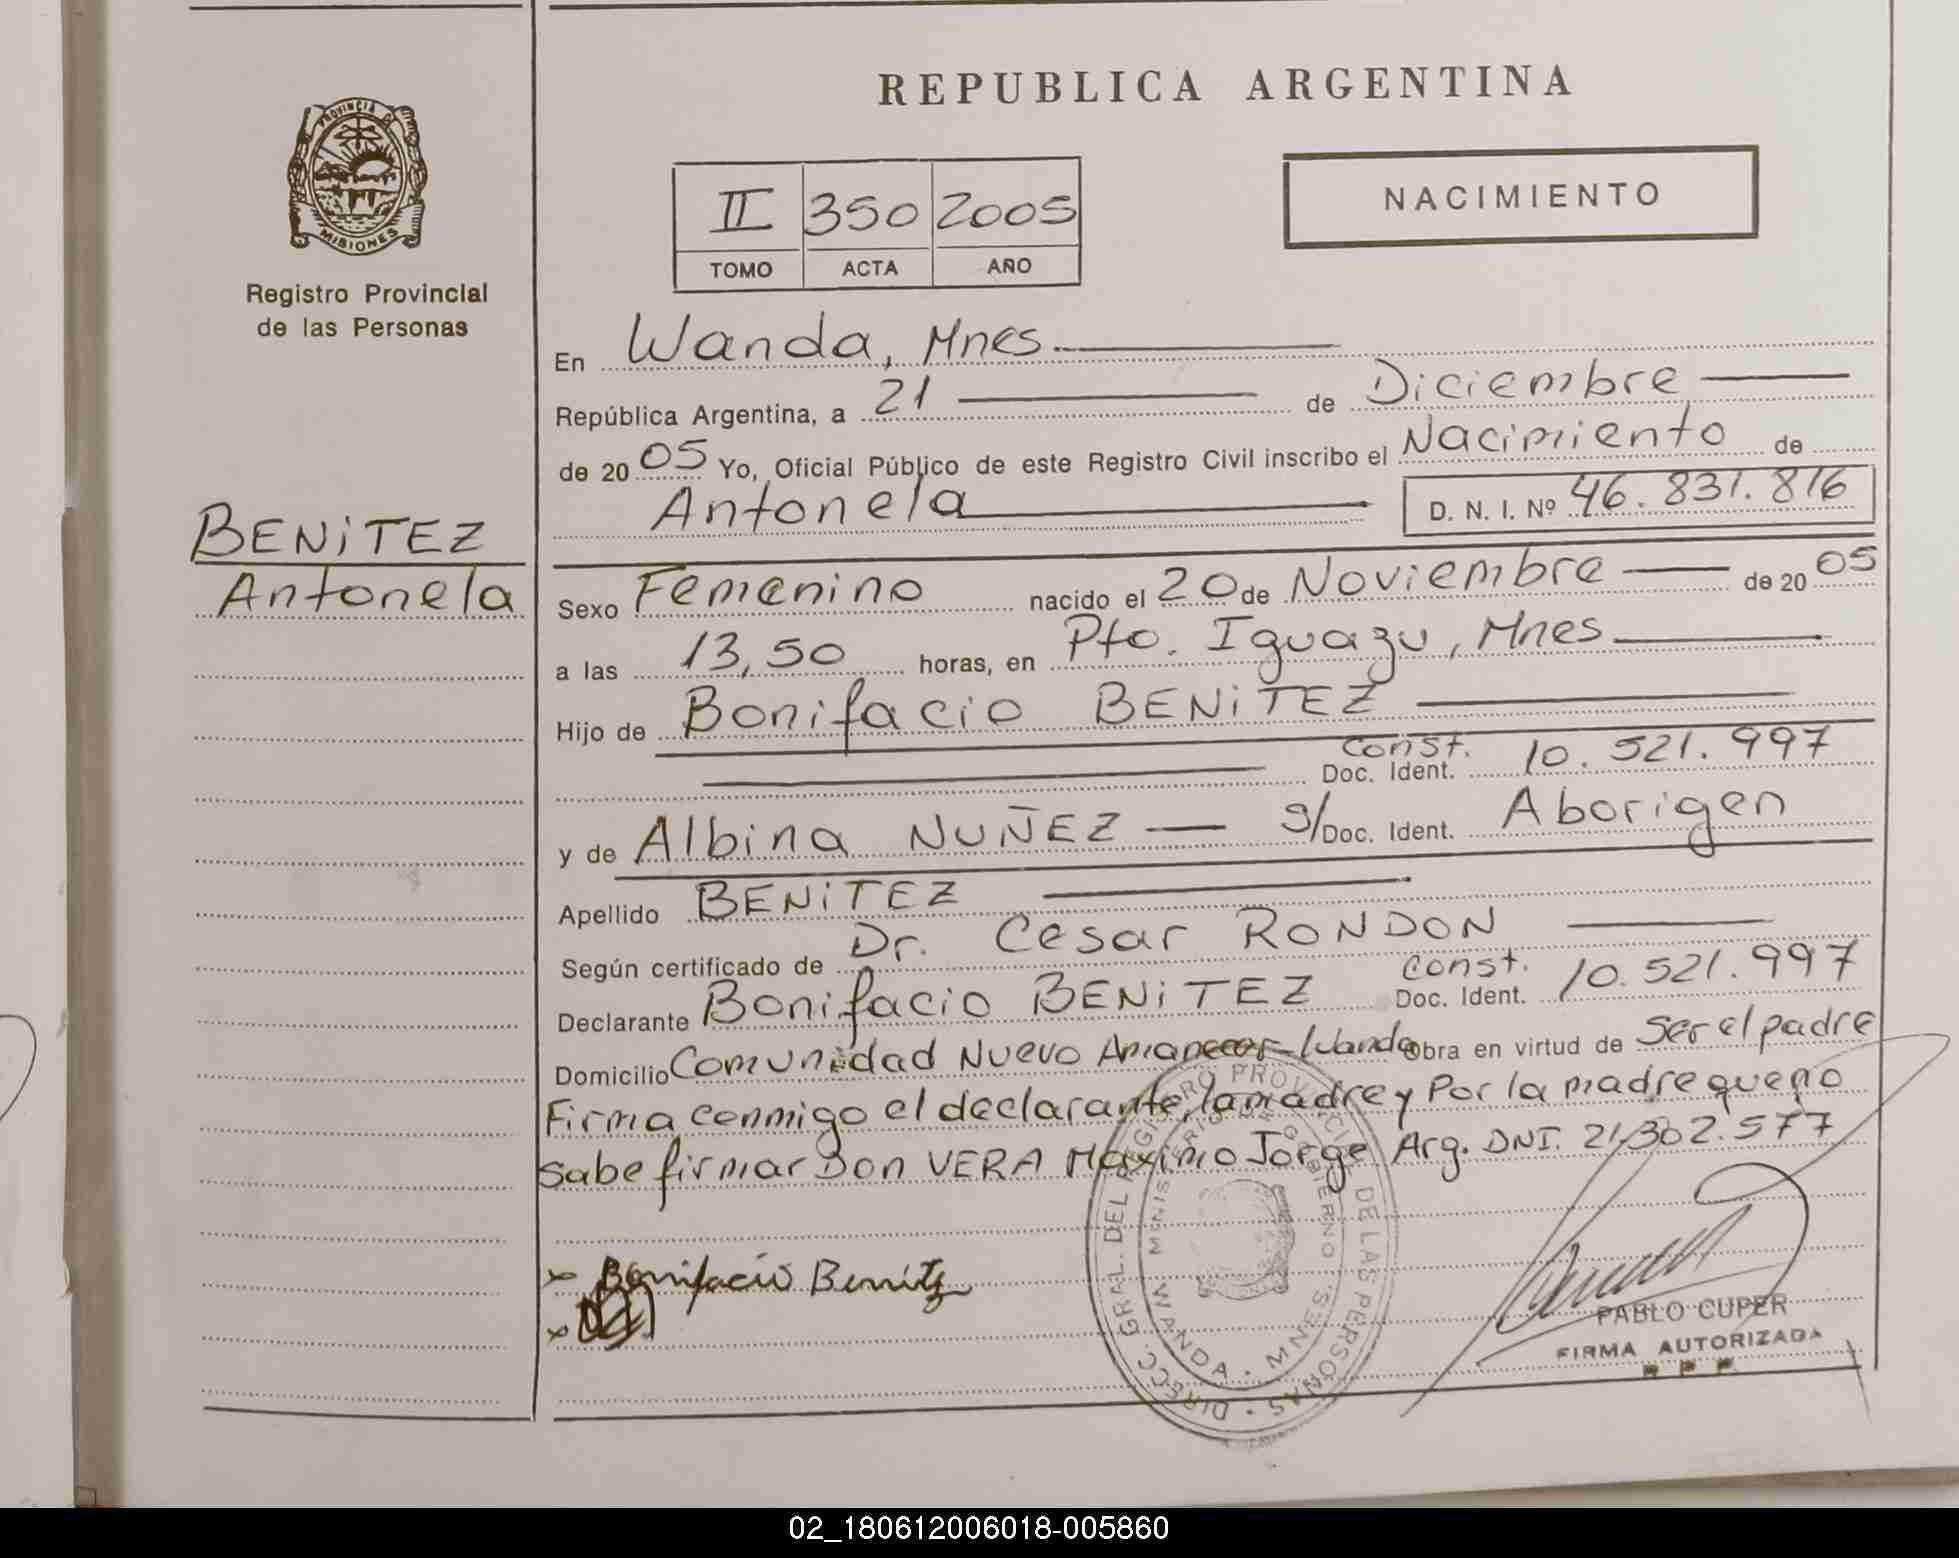 REPUBLICA ARGENTINA
PROVINCIA D
MISIONES
Registro Provincial
de las Personas
II 350 2005
TOMO ACTA AÑO
NACIMIENTO
En Wanda, Mnes
República Argentina, a 21 de Diciembre
de 2005 Yo, Oficial Público de este Registro Civil inscribo el Nacimiento de
Antonela D. N. I. Nº 46.831.816
BENiTEZ
Antonela
Sexo Femenino nacido el 20 de Noviembre de 2005
a las 13,50 horas, en Pto. Iguazu, Mnes
Hijo de Bonifacio BENiTEZ
Const. Doc. Ident. 10.521.997
y de Albina NUÑEZ s/Doc. Ident. Aborigen
Apellido BENiTEZ
Según certificado de Dr. Cesar RONDON
Declarante Bonifacio BENiTEZ Const. Doc. Ident. 10.521.997
Domicilio Comunidad Nuevo Amanecer-Wanda Obra en virtud de Ser el padre
Firma conmigo el declarante, la madre y Por la madre que no
sabe firmar Don VERA Maximo Jorge Arg. DNI. 21.302.577
x Bonifacio Benitez
x
DIRECC. GRAL. DEL REGISTRO PROVINCIAL DE LAS PERSONAS
MINISTERIO DE GOBIERNO
WANDA - MNES
PABLO CUPER
FIRMA AUTORIZADA
R P P
02_180612006018-005860